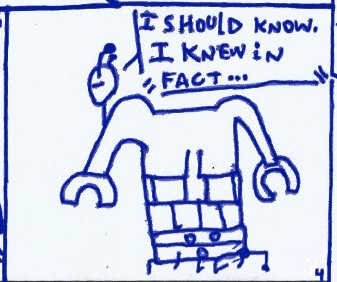 I SHOULD KNOW.
I KNEW iN
FACT...
4